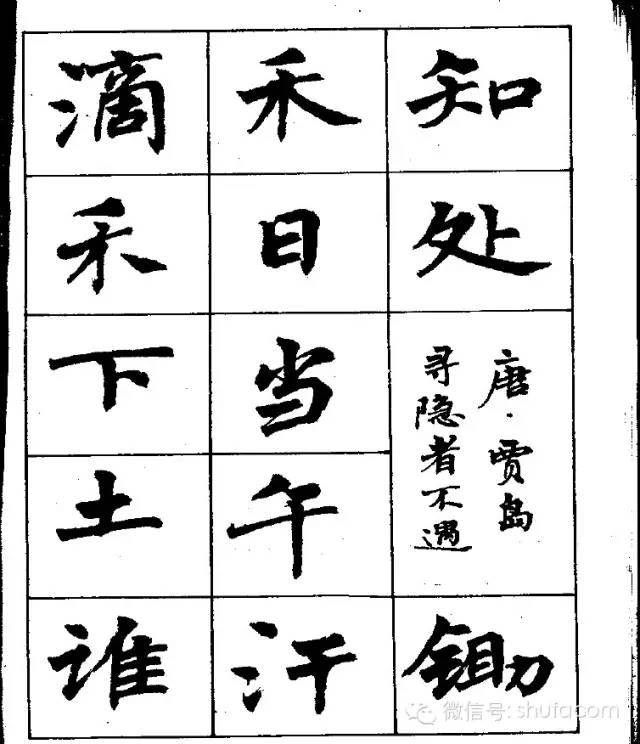 知处
唐·贾岛
寻隐者不遇
锄
禾日当午汗
滴禾下土谁
微信号: shufacom